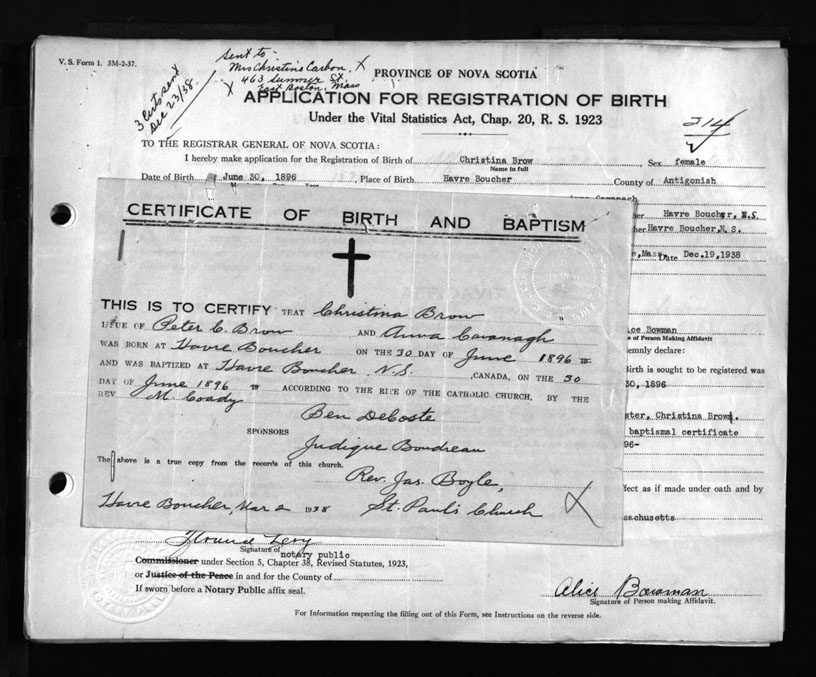 V. S. Form 1. 3M-2-37.
sent to-
Mrs Christina Carbon X
X 463 Summer St.
East Boston, Mass
3 certs sent
Dec 23/38.
PROVINCE OF NOVA SCOTIA
APPLICATION FOR REGISTRATION OF BIRTH
Under the Vital Statistics Act, Chap. 20, R. S. 1923
214
TO THE REGISTRAR GENERAL OF NOVA SCOTIA:
I hereby make application for the Registration of Birth of Christina Brow , Sex female
Name in full
Date of Birth June 30, 1896 , Place of Birth Havre Boucher County of Antigonish
Havre Boucher, N.S.
Havre Boucher, N. S.
Mass. Date Dec. 19, 1938
CERTIFICATE OF BIRTH AND BAPTISM
THIS IS TO CERTIFY THAT Christina Brow
ISSUE OF Peter C. Brow AND Anna Cavanagh
WAS BORN AT Havre Boucher ON THE 30 DAY OF June 1896 19
AND WAS BAPTIZED AT Havre Boucher N.S. , CANADA, ON THE 30
DAY OF June 1896 19 ACCORDING TO THE RITE OF THE CATHOLIC CHURCH, BY THE
REV. M. Coady
Ben DeCoste
SPONSORS
Judique Boudreau
The above is a true copy from the records of this church.
Rev. Jas. Boyle,
Havre Boucher, Mar 2 1938 St. Paul's Church X
ice Bowman
e of Person Making Affidavit
emnly declare:
Birth is sought to be registered was
30, 1896
ster, Christina Brow.
baptismal certificate
96-
ffect as if made under oath and by
ssachusetts
Signature of
notary public
Commissioner under Section 5, Chapter 38, Revised Statutes, 1923,
or Justice of the Peace in and for the County of
If sworn before a Notary Public affix seal.
Alice Bowman
Signature of Person making Affidavit.
For Information respecting the filling out of this Form, see Instructions on the reverse side.